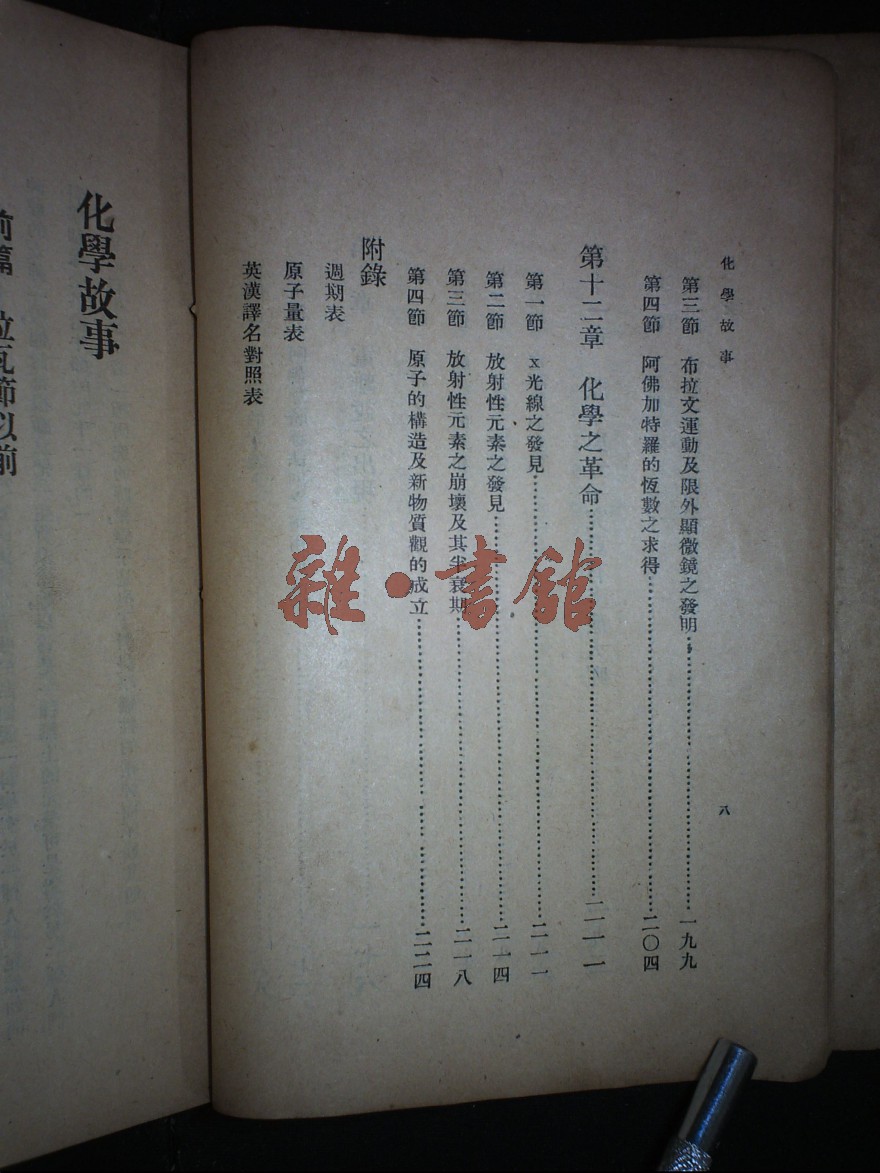 化學故事
八
第三節　布拉文運動及限外顯微鏡之發明……一九九
第四節　阿佛加特羅的恆數之求得……二〇四
第十二章　化學之革命……二一一
第一節　x光線之發見……二一一
第二節　放射性元素之發見……二一四
第三節　放射性元素之崩壞及其半衰期……二一八
第四節　原子的構造及新物質觀的成立……二二四
附錄
週期表
原子量表
英漢譯名對照表
雜·書館
化學故事
前篇　拉瓦節以前